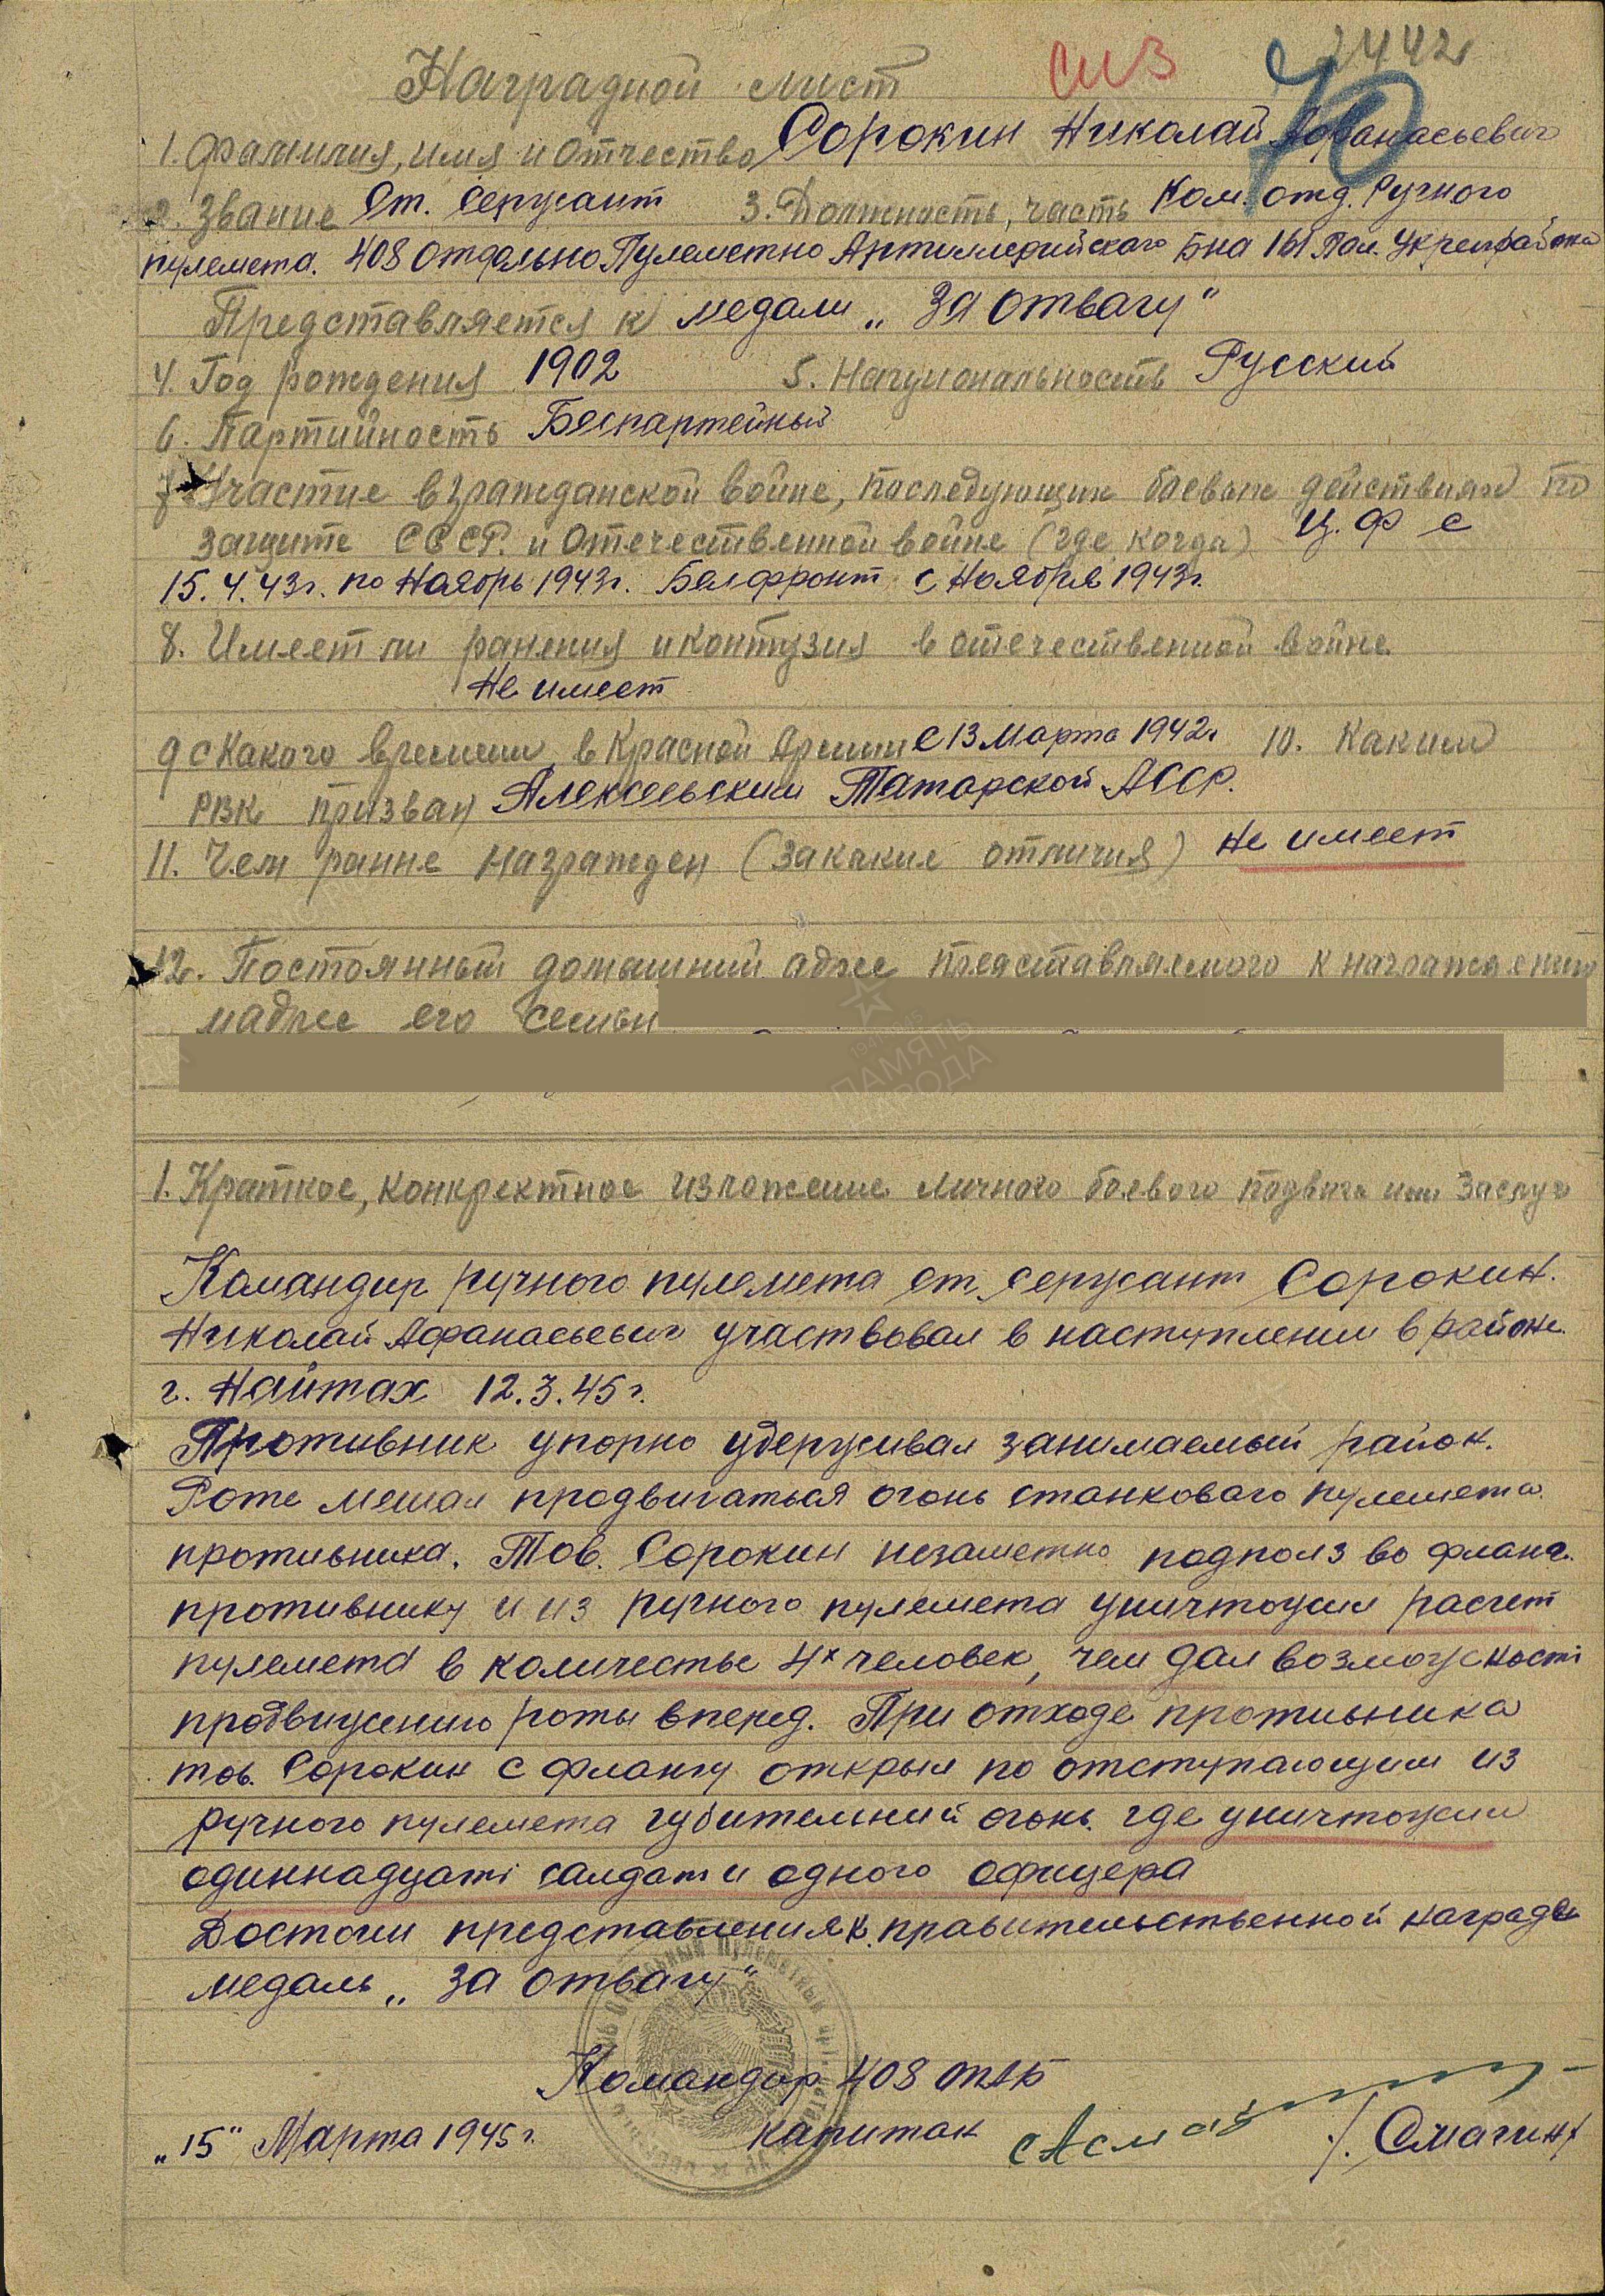 2442
Наградной лист
70
1. Фамилия, имя и Отчество Сорокин Николай Афанасьевич
2. Звание Ст. Сержант 3. Должность, часть Ком. отд. Ручного
пулемета. 408 Отдельно Пулеметно Артиллерийского Б-на 161 Пол. Укрепрайона
Представляется к медали „За отвагу"
4. Год рождения 1902 5. Национальность Русский
6. Партийность Беспартейный
7. Участие в гражданской войне, последующих боевых действиях по
защите СССР. и Отечественной войне (где, когда) Ц. Ф с
15.4.43г. по Ноябрь 1943г. Белфронт с Ноября 1943г.
8. Имеет ли ранения и контузия в отечественной войне
Не имеет
9 с Какого времени в Красной Армии С 13 Марта 1942г 10. Каким
РВК призван Алексеевским Татарской АССР.
11. Чем ранне награжден (за какие отличия) Не имеет
12. Постоянный домашний адрес представляемого к награждению
и адрес его семьи
ПАМЯТЬ НАРОДА
1. Краткое, конкректное изложение личного боевого подвига или заслуг
Командир ручного пулемета ст. сержант Сорокин.
Николай Афанасьевич участвовал в наступлении в районе
г. Найтах 12.3.45г.
Противник упорно удерживал занимаемый район.
Роте мешал продвигаться огонь станкового пулемета
противника. Тов. Сорокин незаметно подполз во фланг
противнику и из ручного пулемета уничтожил расчет
пулемета в количестве 4х человек, чем дал возможность
продвижению роты вперед. При отходе противника
тов. Сорокин с флангу открыл по отступающим из
ручного пулемета губительний огонь. где уничтожил
одиннадцать салдат и одного офицера
Достоин представления к правительственной награды
медаль „За отвагу"
Командир 408 ОПАБ
„15" Марта 1945г. капитан /. Смагин/